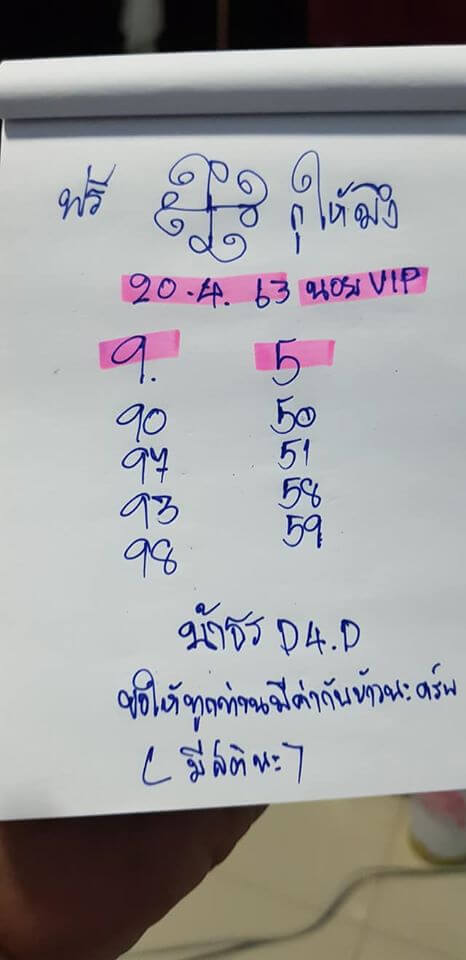 ฟรี กูให้มึง
20.4.63 นอย VIP
9. 5
90 50
97 51
93 58
98 59
น้าธร D4.D
ขอให้ทุกท่านมีค่ากับข้าวนะครับ
(มีสตินะ)